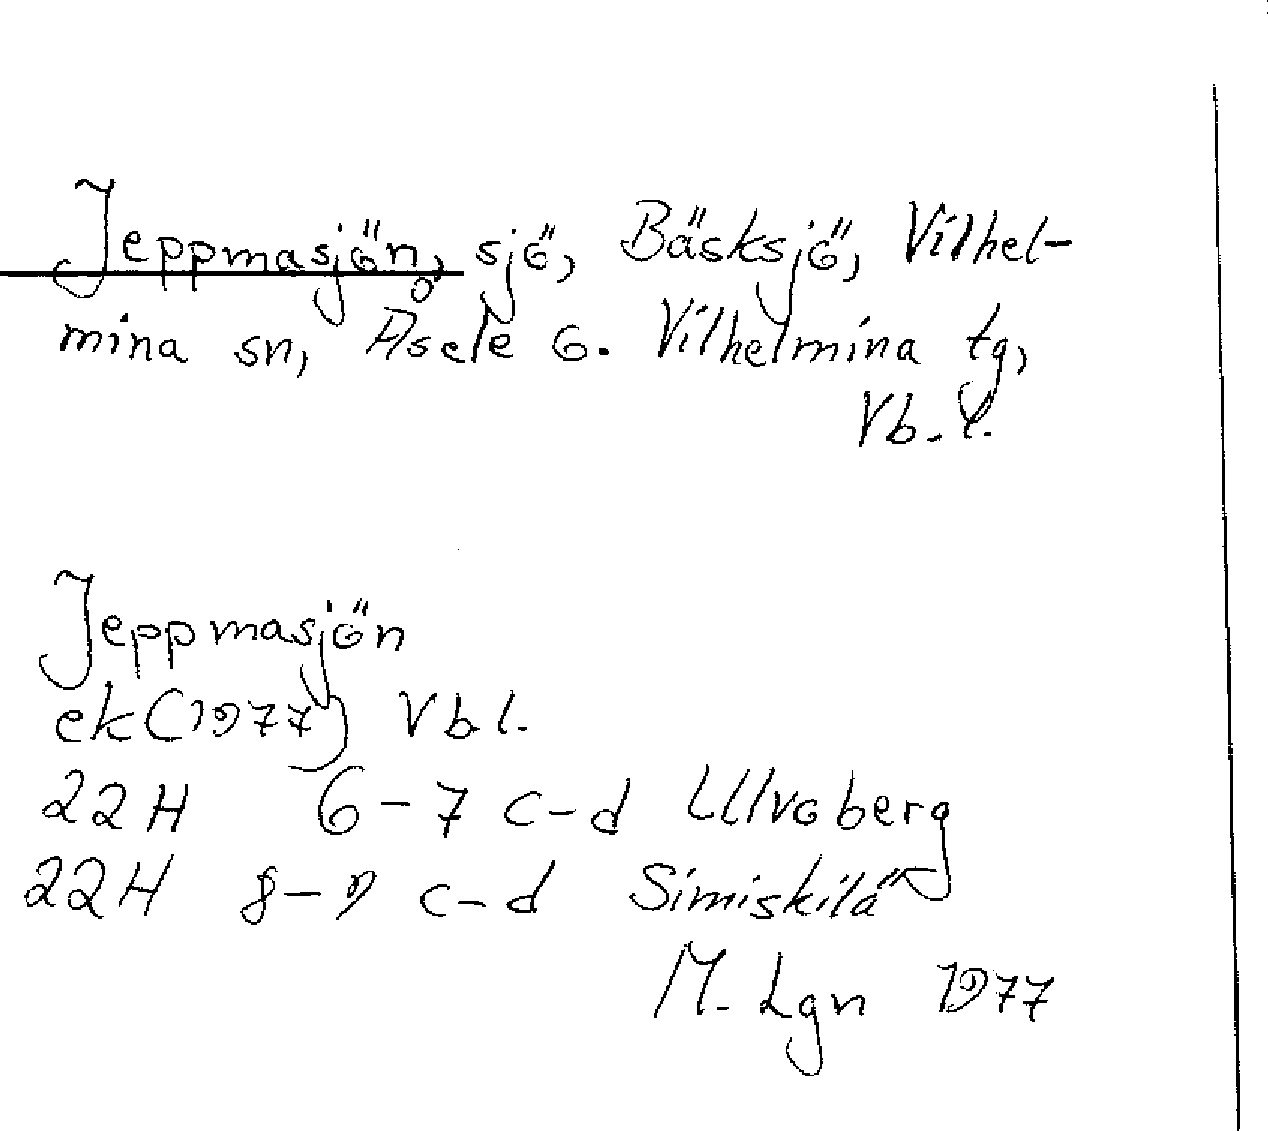 Jeppmasjön, sjö, Bäsksjö, Vilhel-
mina sn, Åsele o. Vilhelmina tg,
Vb. l.
Jeppmasjön
ek (1977) Vb l.
22 H 6-7 c-d Ulvoberg
22 H 8-9 c-d Simiskilä
M. Lgn 1977